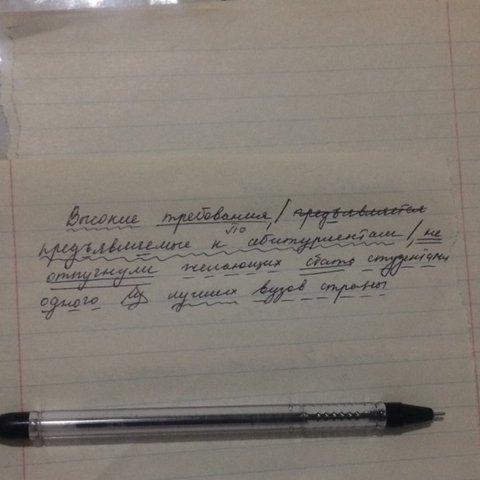 Высокие требования, / предъявляется
предъявляемые к абитуриентам /, не
отпугнули желающих стать студентами
одного из лучших вузов страны